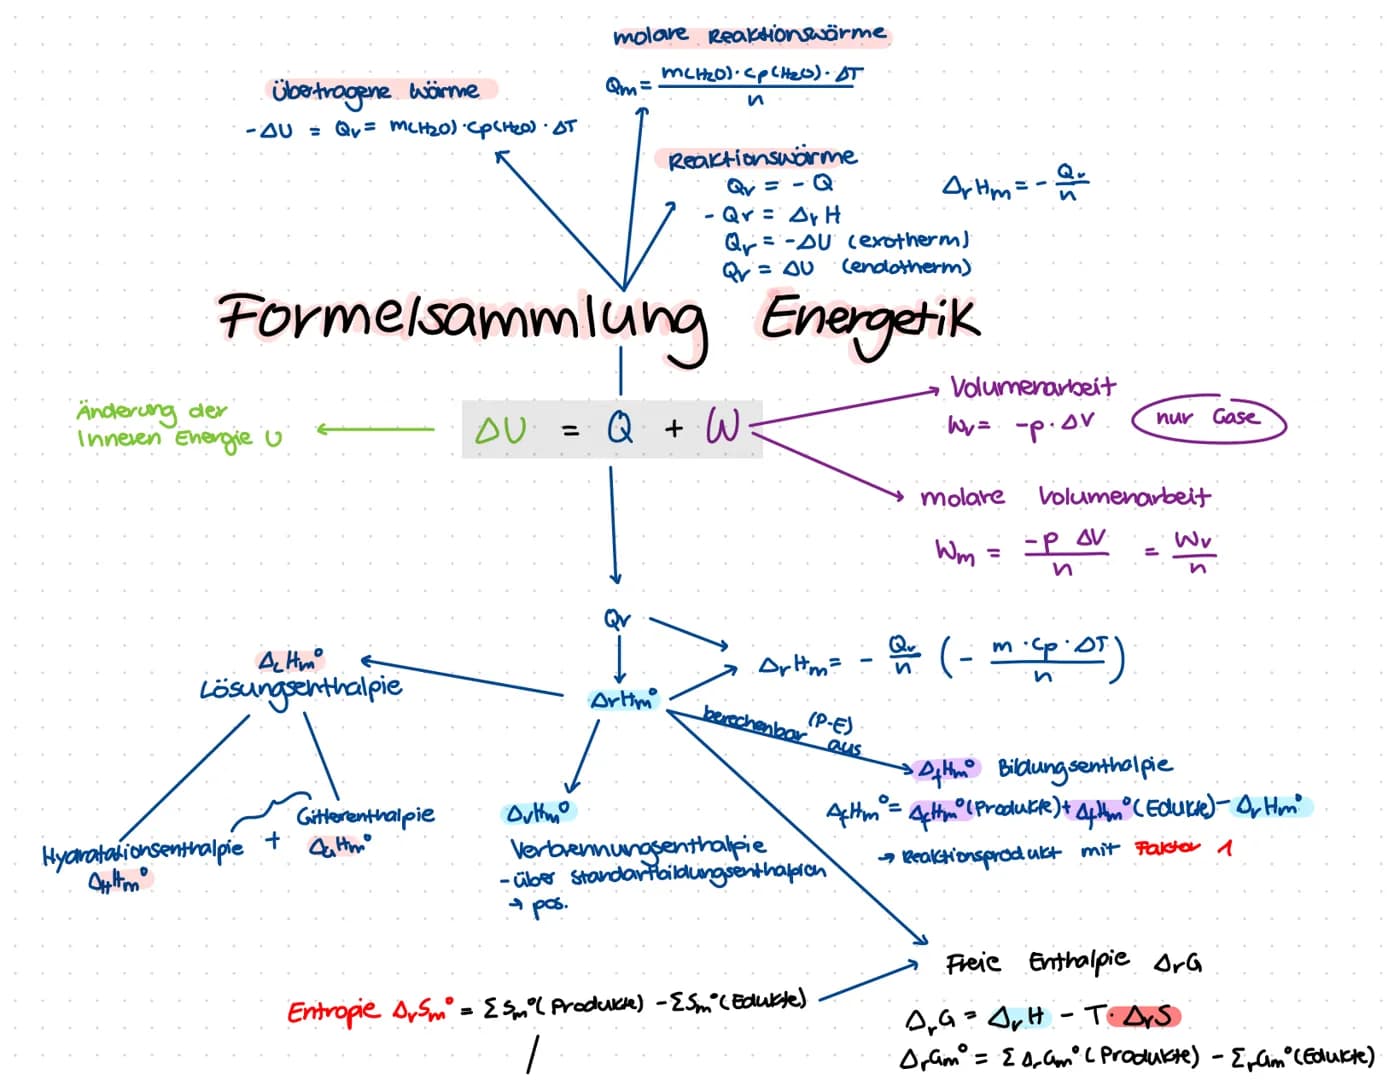 molare Reaktionswärme
Qm = m(H2O)·cp(H2O)·ΔT / n
Übertragene Wärme
-ΔU = Qv = m(H2O)·cp(H2O)·ΔT
Reaktionswärme
Qr = - Q
- Qr = ΔrH
Qr = -ΔU (exotherm)
Qr = ΔU (endotherm)
ΔrHm = - Qr / n
Formelsammlung Energetik
Änderung der
Inneren Energie U
ΔU = Q + W
Volumenarbeit
Wv = -p·ΔV
nur Gase
molare Volumenarbeit
Wm = -p ΔV / n = Wv / n
Qr
ΔrHm = - Qr / n (- m·cp·ΔT / n)
ΔLHm°
Lösungsenthalpie
ΔrHm°
berechenbar (P-E)
aus
ΔfHm° Bildungsenthalpie
ΔfHm° = ΔfHm°(Produkte)+ΔfHm°(Edukte)-ΔrHm°
→ Reaktionsprodukt mit Faktor 1
Gitterenthalpie
ΔGHm°
Hydratationsenthalpie +
ΔHHm°
ΔvHm°
Verbrennungsenthalpie
- über Standartbildungsenthalpien
→ pos.
Freie Enthalpie ΔrG
Entropie ΔrSm° = ΣSm°(Produkte) -ΣSm°(Edukte)
ΔrG = ΔrH - T·ΔrS
ΔrGm° = ΣΔrGm°(Produkte) - ΣrGm°(Edukte)